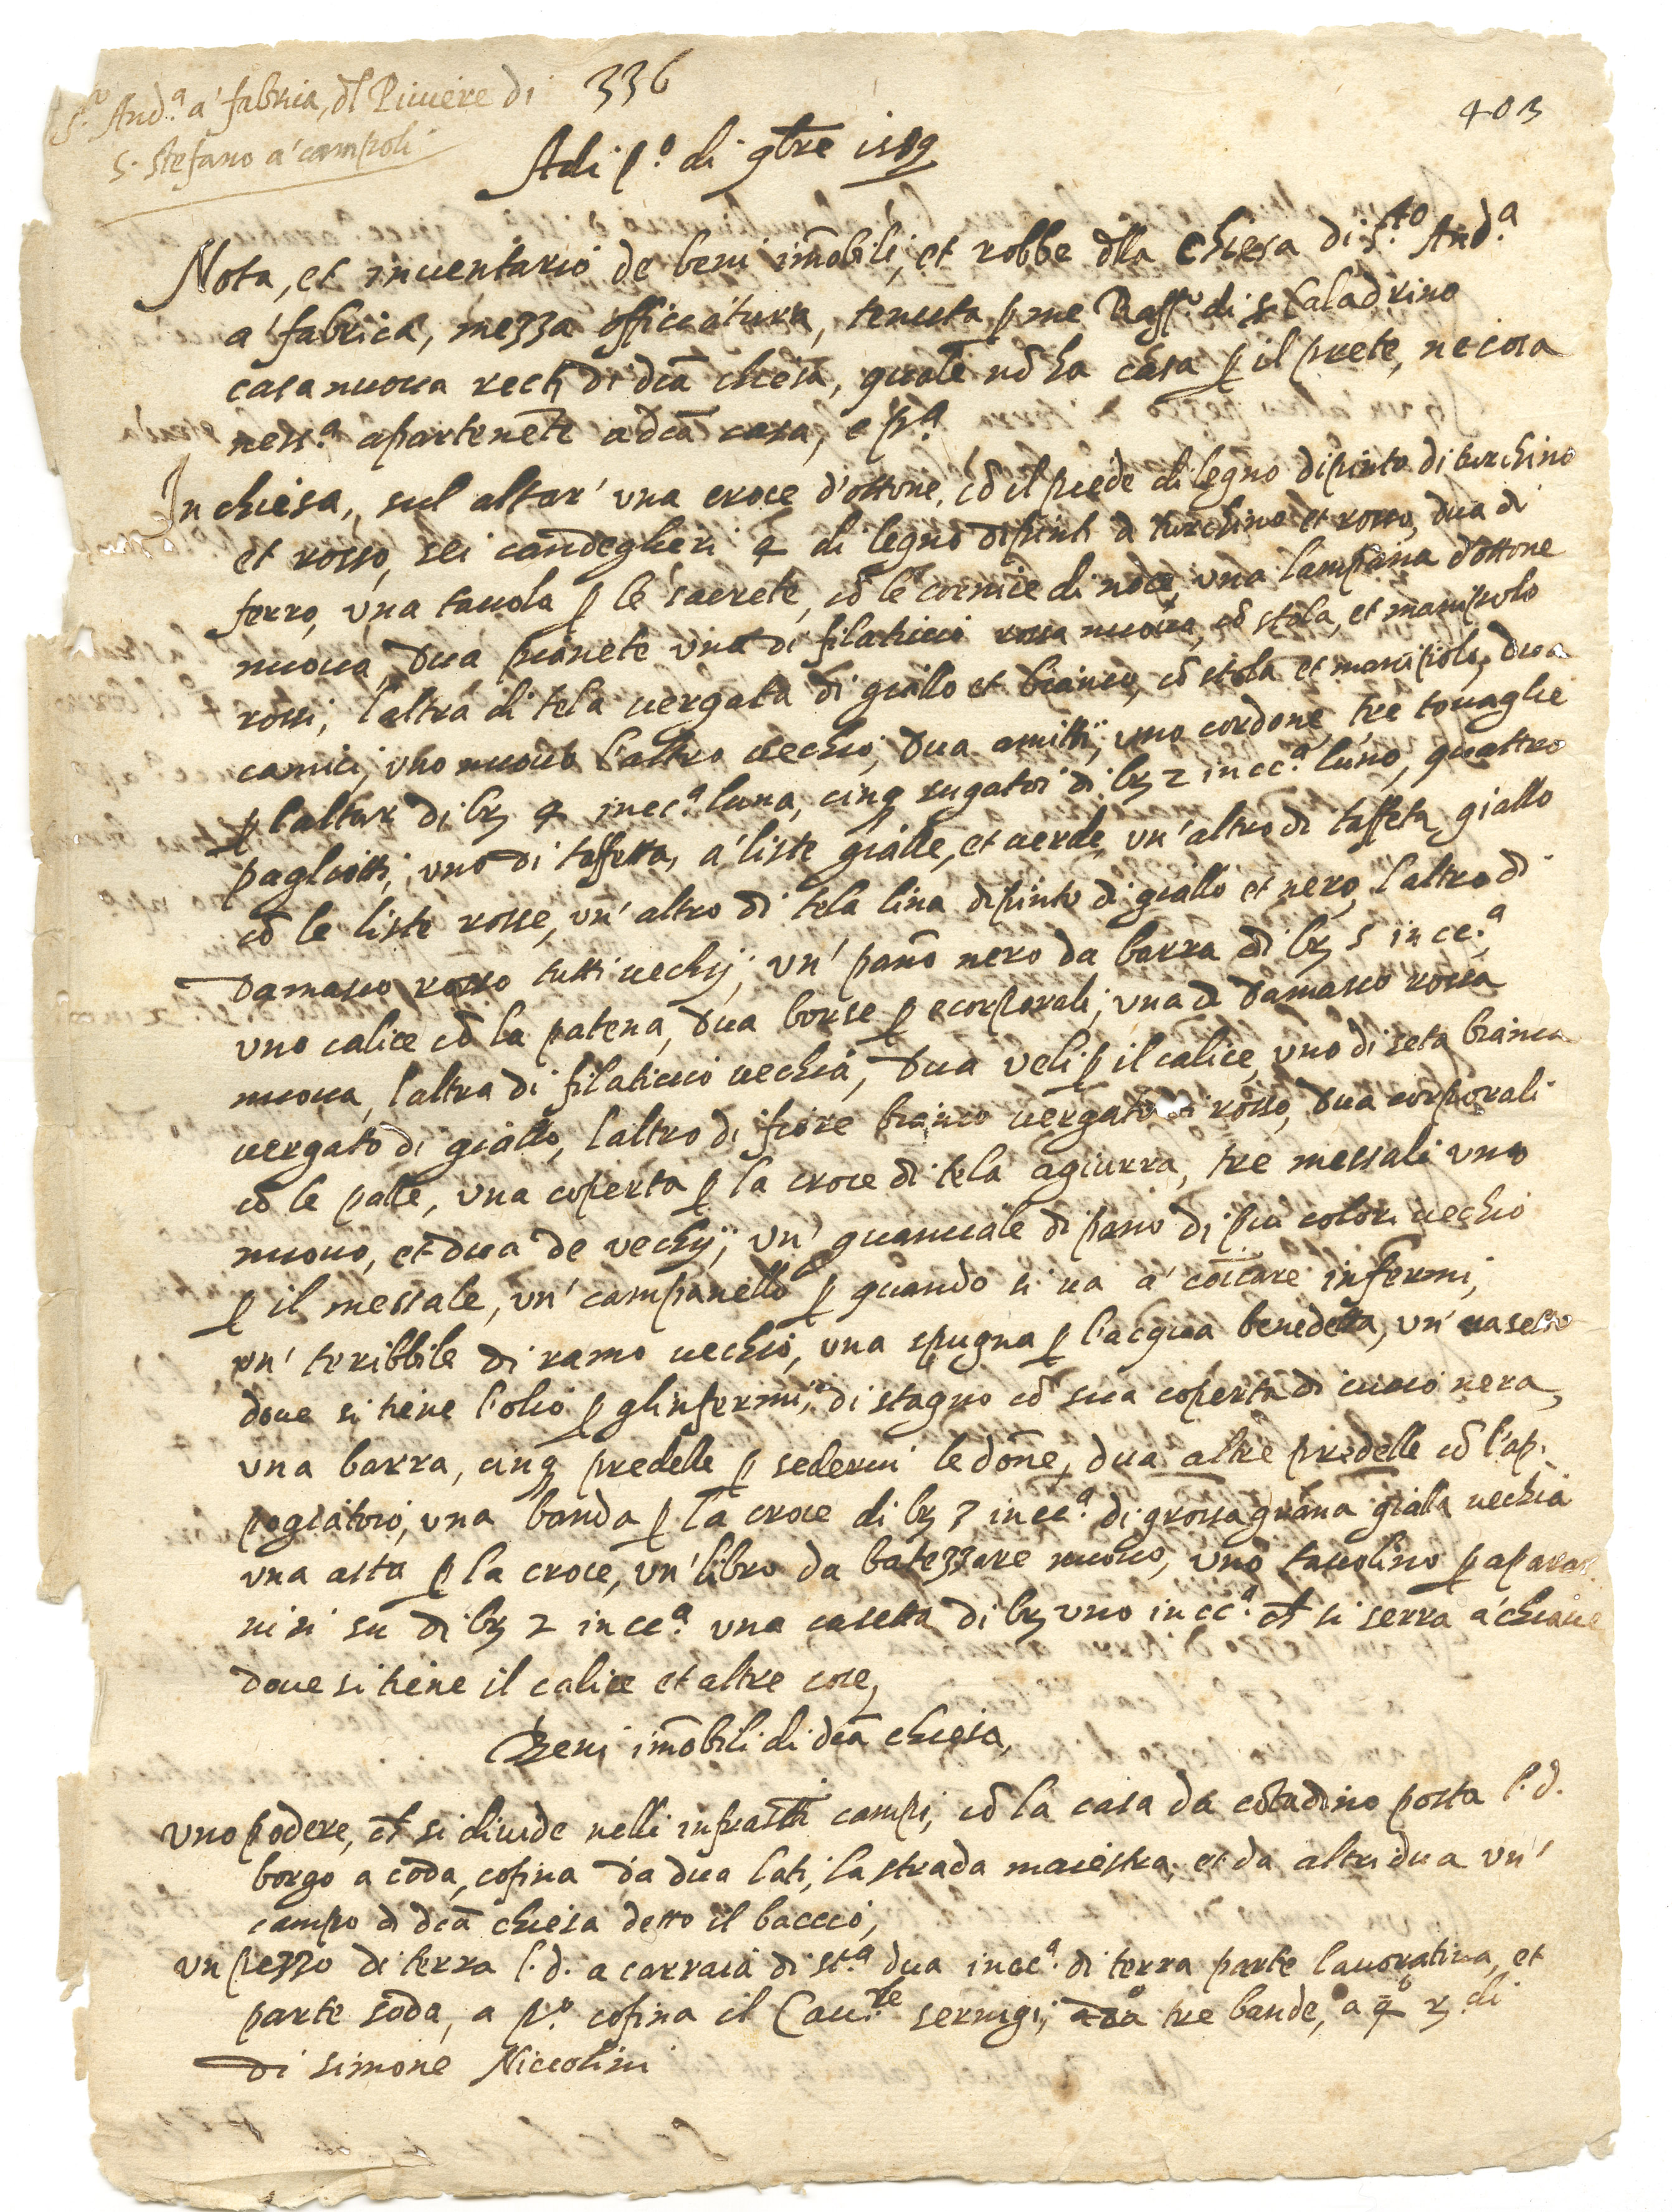 S.to And.a a' fabrica, dl Piviere di 336
S. Stefano a' campoli
403
Adi p.o di 9bre 1589
Nota, et inuentario de beni imobili, et robbe dlla chiesa di S.to And.a
a' fabrica, mezza officiatura, tenuta p me Raff.o di s Caladrino
casa nuoua rect di dca chiesa, quale nō ha casa p il prete, ne cosa
ness.a apartenēte a dca casa, e p.a
In chiesa, sul altar' una croce d'ottone, cō il piede di legno dipinto di turchino
et rosso, sei candeglieri 4 di legno dipinti di turchino et rosso, dua di
ferro, una tauola p le sacrete, cō le cornice di noce, una lampana d'ottone
nuoua, dua pianete una di filaticcio rossa nuoua, cō stola, et manipolo
rossi, l'altra di tela uergata di giallo et bianco, cō stola et manipolo, dua
camici, uno nuouo l'altro uecchio, dua amitti, uno cordone, tre touaglie
p l'altar di br 4 in cc.a luna, cinq sugatoi di br 2 in cc.a luno, quattro
pagliotti, uno di taffetta, a' liste gialle, et uerde, un' altro di taffeta giallo
cō le liste rosse, un' altro di tela lina dipinto di giallo et nero, l'altro di
damasco rosso tutti uechij, un' pano nero da barra di br 5 in cc.a
uno calice cō la patena, dua borse p e corporali, una di damasco rossa
nuoua, l'altra di filaticcio uechia, dua veli p il calice, uno di seta bianca
uergato di giallo, l'altro di fiore bianco uergato di rosso, dua corporali
cō le palle, una coperta p la croce di tela agiurra, tre messali uno
nuouo, et dua de vechij, un' guanciale di pano di piu colori uechio
p il messale, un' campanello p quando si ua a' coīcare infermi,
un' teribbile di ramo uechio, una spugna p l'acqua benedetta, un' uasetto
doue si tiene l'olio p gl'infermi, di stagno cō sua coperta di cuoio nera,
una barra, cinq predelle p sederui le done, dua altre predelle cō l'ap-
pogiatoio, una banda p la croce di br 3 in cc.a di grossagrana gialla uechia
una asta p la croce, un' libro da batezzare nuouo, uno tauolino p aparar
uisi su di br 2 in cc.a una casetta di br uno in cc.a ch si serra a' chiaue
doue si tiene il calice et altre cose,
Beni imobili di dca chiesa,
Uno podere, ch si diuide nelli infrascti campi, cō la casa da cōtadino posta l.d.
borgo a coda, cofina da dua lati, la strada maiestra, et da altri dua un'
campo di dca chiesa detto il baccio,
un pezzo di terra l.d. a carraia di st.a dua in cc.a di terra parte lauoratiua, et
parte soda, a p.o cofina il Cau.re sernigi, tre bande, a 4.o di
di simone Niccolini